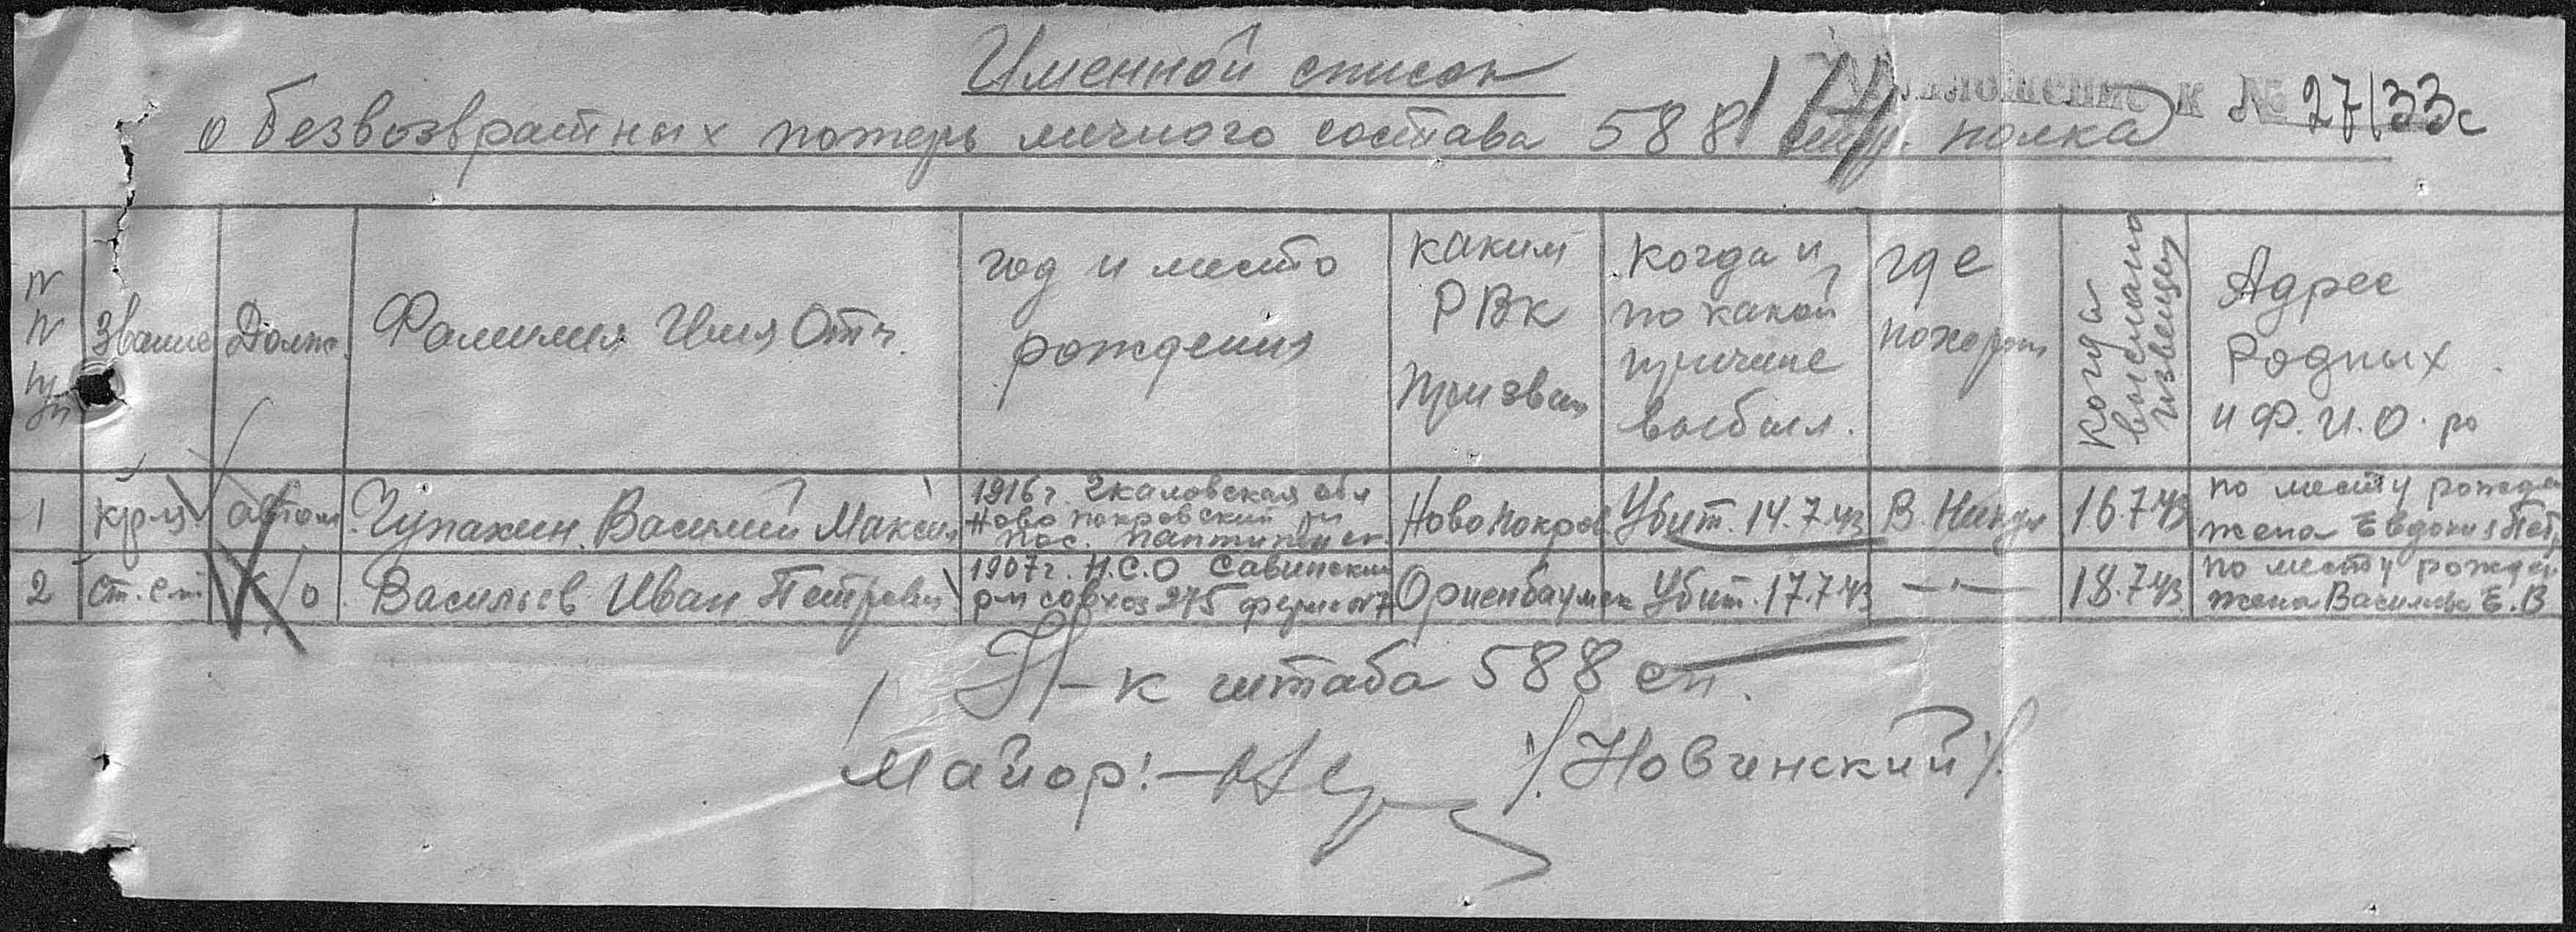 Именной список
Приложение к № 27/33с
о безвозвратных потерь личного состава 588 стр. полка
N N п/п
Звание
Должн.
Фамилия Имя Отч.
год и место
рождения
каким
РВК
призван
Когда и
по какой
причине
выбыл.
где
похорон
Когда
выслано
извещен
Адрес
Родных
и Ф.И.О. ро
1 кр-ц автом. Чупахин Василий Максим
1916 г. Чкаловская обл
Ново покровский рн
пос.
Новопокров Убит. 14.7.43 В. 16.7.43
по месту рожде
жена Евдокия Пет
2 ст. с-т к/о Васильев Иван Петрович
1907 г. Н.С.О Савинский
р-н совхоз 275 ферма №7
Ориенбаумск Убит. 17.7.43 —"— 18.7.43
по месту рожден
жена Васильева Е.В
Н-к штаба 588 сп.
Майор: /Новинский/